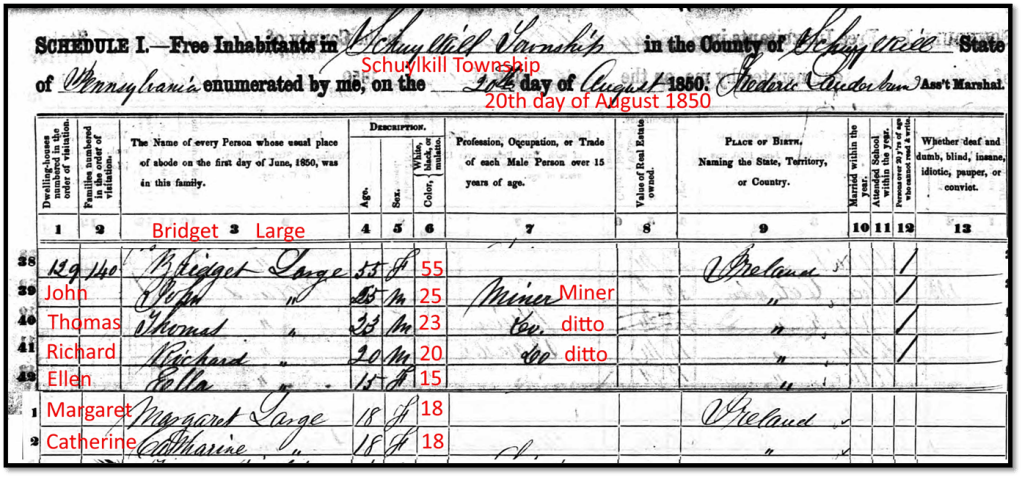 SCHEDULE I.—Free Inhabitants in Schuylkill Township in the County of Schuylkill State
Schuylkill Township
of Pennsylvania enumerated by me, on the 20th day of August 1850. Frederic Lauderbrun Ass't Marshal.
20th day of August 1850
DESCRIPTION.
Dwelling-houses numbered in the order of visitation.
Families numbered in the order of visitation.
The Name of every Person whose usual place of abode on the first day of June, 1850, was in this family.
Age.
Sex.
Color, { White, black, or mulatto.
Profession, Occupation, or Trade of each Male Person over 15 years of age.
Value of Real Estate owned.
PLACE OF BIRTH. Naming the State, Territory, or Country.
Married within the year.
Attended School within the year.
Persons over 20 y'rs of age who cannot read & write.
Whether deaf and dumb, blind, insane, idiotic, pauper, or convict.
1 2 Bridget 3 Large 4 5 6 7 8 9 10 11 12 13
38 129 140 Bridget Large 55 F 55 Ireland /
39 John John " 25 M 25 Miner Miner " /
40 Thomas Thomas " 23 M 23 Do. ditto " /
41 Richard Richard " 20 M 20 Do ditto " /
42 Ellen Ella " 15 F 15 "
1 Margaret Margaret Large 18 F 18 Ireland
2 Catherine Catharine " 18 F 18 "